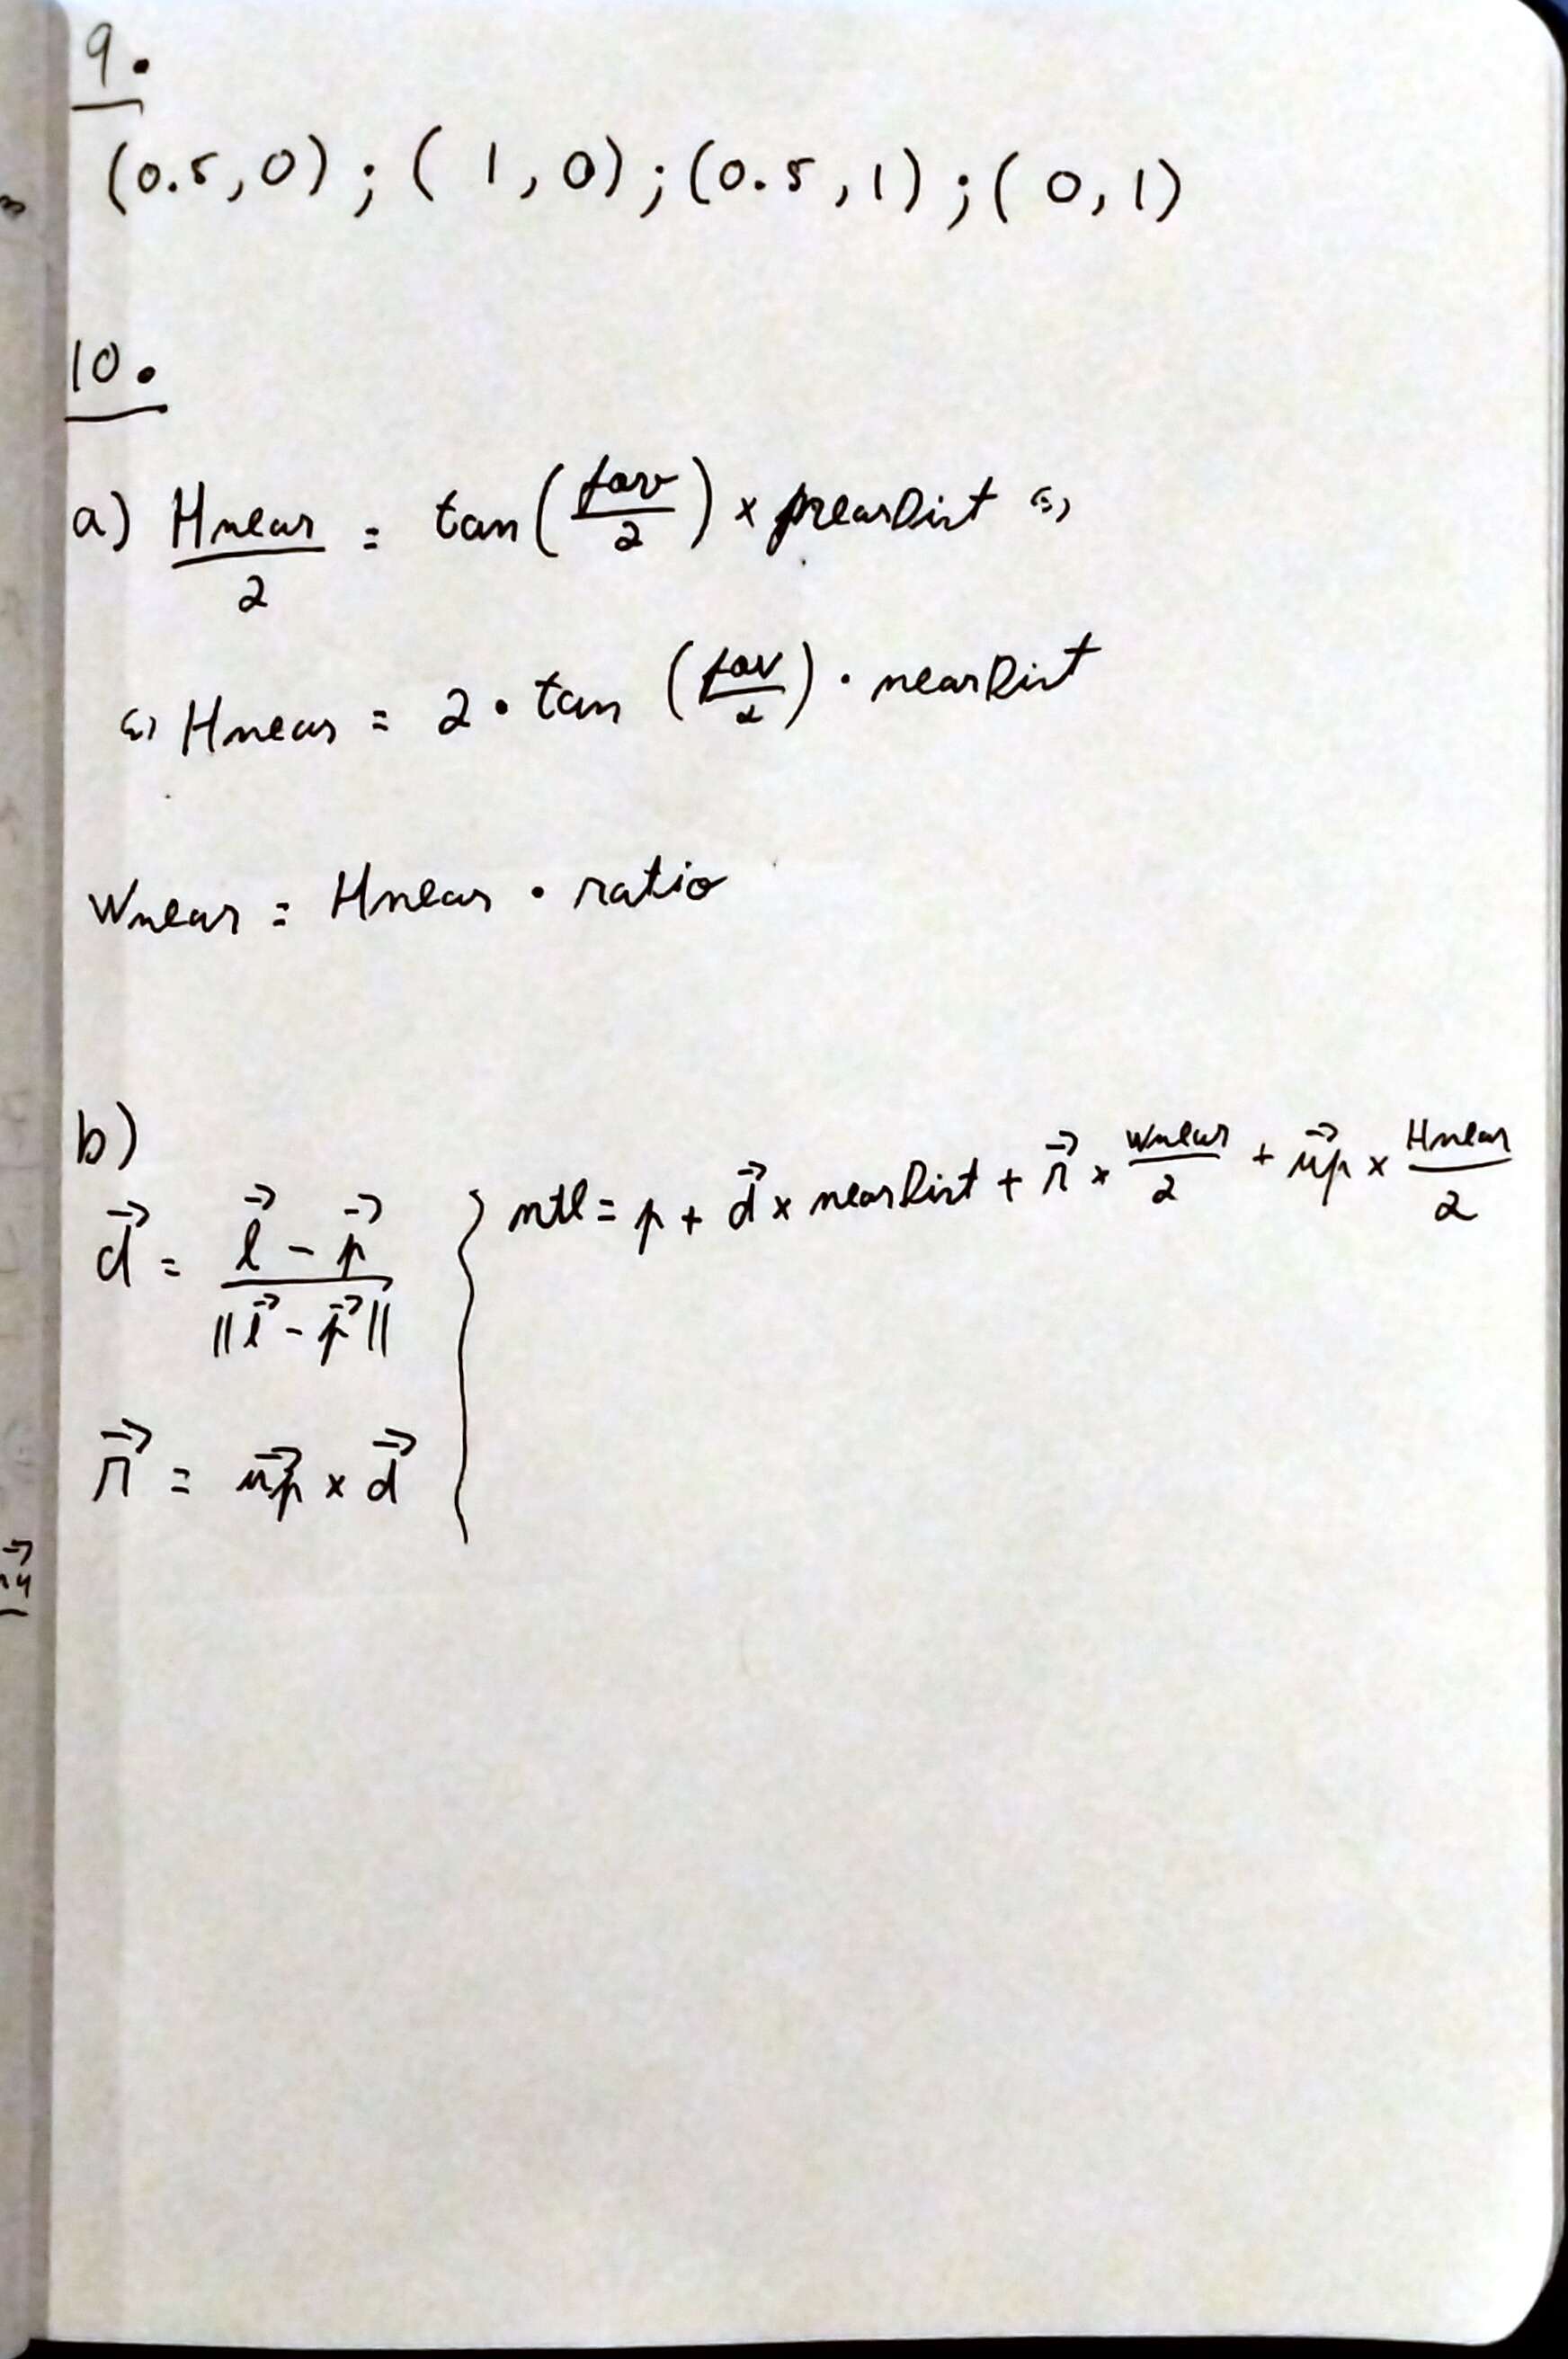 9.
(0.5, 0) ; ( 1, 0) ; (0.5, 1) ; ( 0, 1)
10.
a) Hnear/2 = tan(fov/2) × nearDist ⇔
⇔ Hnear = 2 · tan (fov/2) · nearDist
Wnear = Hnear · ratio
b)
d⃗ = (l⃗ - p⃗) / ||l⃗ - p⃗||
ntl = p + d⃗ × nearDist + r⃗ × Wnear/2 + up⃗ × Hnear/2
r⃗ = up⃗ × d⃗